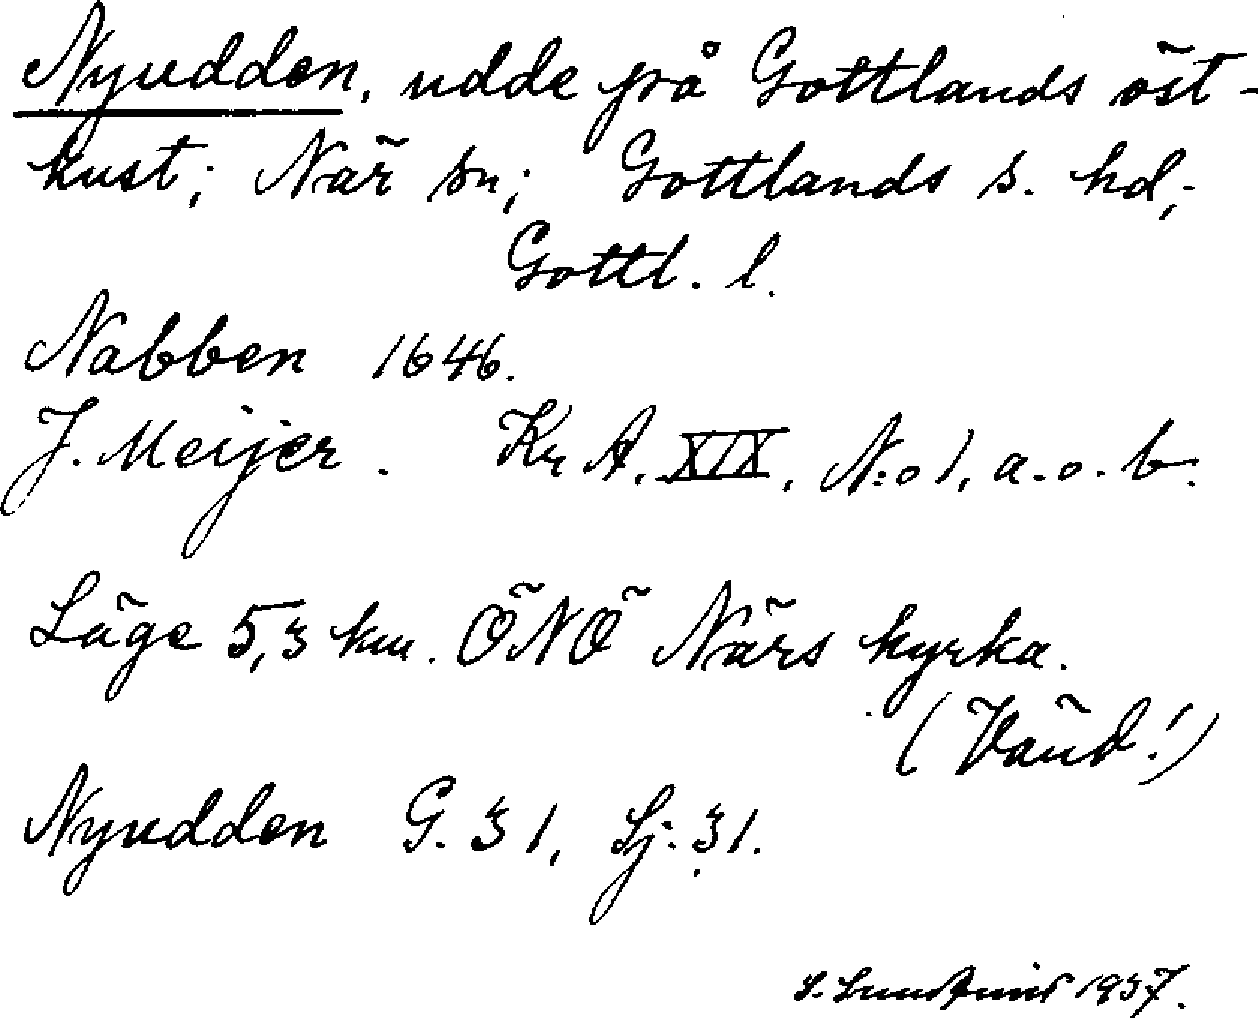 Nyudden, udde på Gottlands öst-
kust; När sn; Gottlands s. hd;
Gottl. l.
Nabben 1646.
J. Meijer. Kr A. XIX, N:o 1, a. o. b.
Läge 5,3 km. ÖNÖ Närs kyrka.
(Vänd!)
Nyudden G. 31, Sj. 31.
1937.